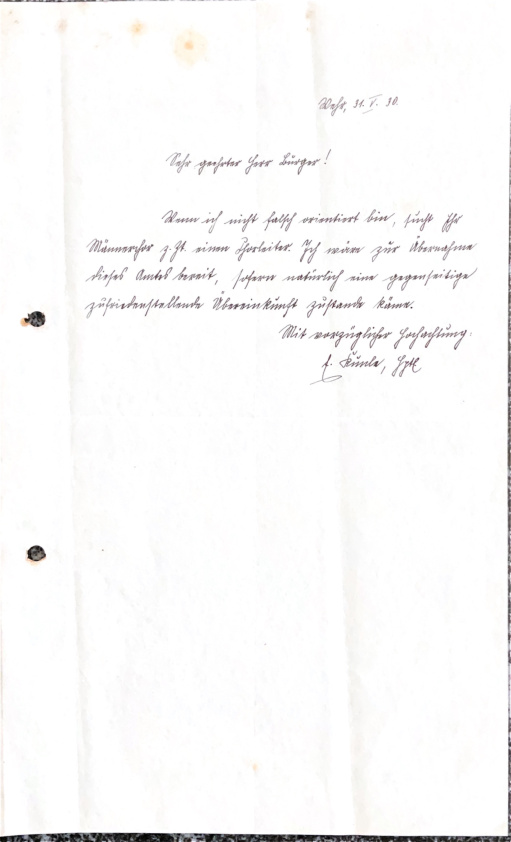 Wehr, 31. V. 30.
Sehr geehrter Herr Bürger!
Wenn ich nicht falsch orientiert bin, sucht Ihr
Männerchor z. Zt. einen Chorleiter. Ich wäre zur Übernahme
dieses Amtes bereit, sofern natürlich eine gegenseitige
zufriedenstellende Übereinkunft zustande käme.
Mit vorzüglicher Hochachtung:
E. Kunle, Hptl